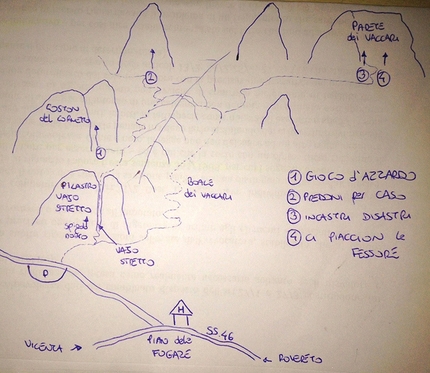 PARETE
dei VACCARI
2
3
4
COSTON
del CORNETTO
1
PILASTRO
VAJO
STRETTO
BOALE
dei VACCARI
SPIGOLO
VAJO
STRETTO
P
1 GIOCO d'AZZARDO
2 PREDONI PER CASO
3 INCASTRI DISASTRI
4 CI PIACCION LE
FESSURE
H
SS 46
PIAN delle
FUGAZZE
VICENZA
ROVERETO